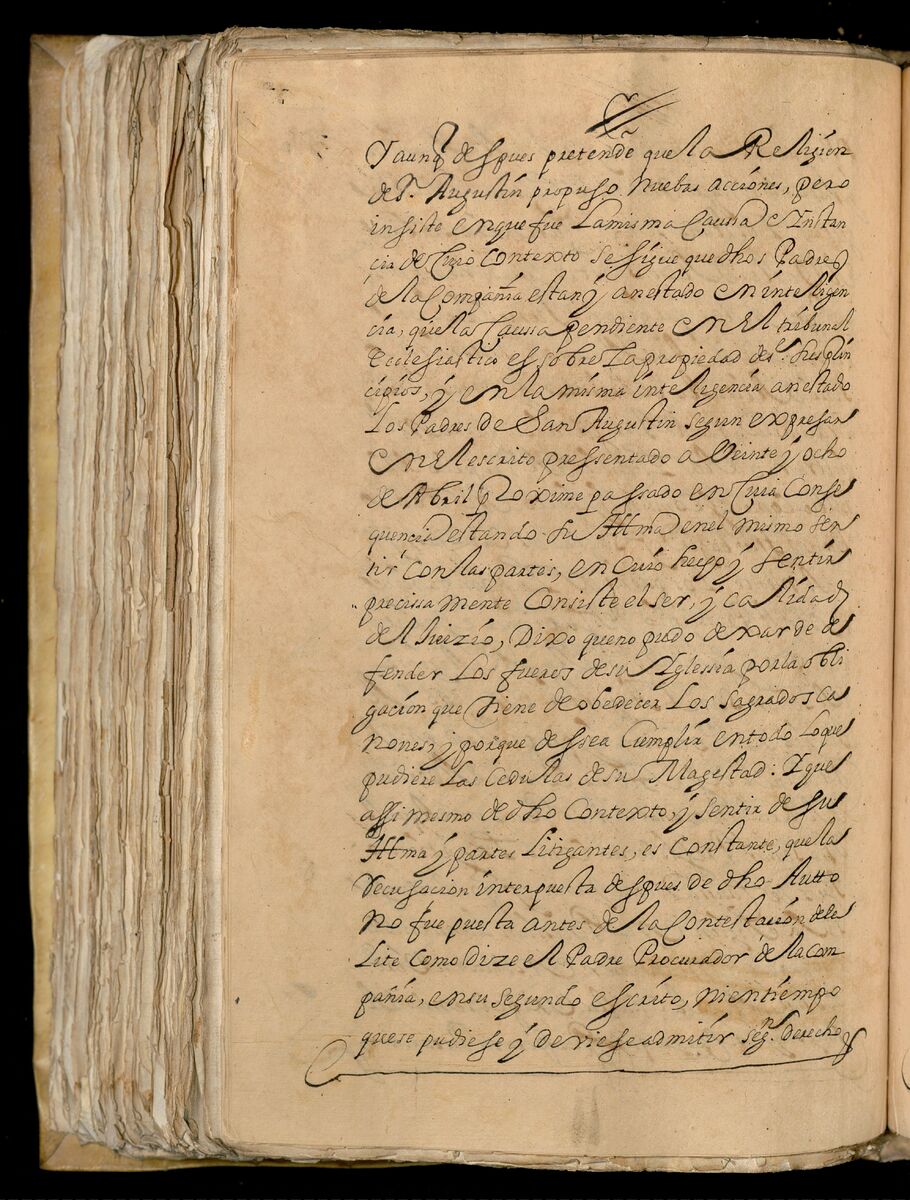 Y aunq̃ despues pretendē que la Religion
de S.ⁿ Augustin propuso nuebas acciónes, pero
insiste en que fue la misma Caussa e Instan
cia de Cuio Contexto se sigue que dhos Padres
de la Compañia estan y an estado en inteligen
cia, que la Caussa pendiente en el tribunal
Ecclesiastico es sobre la propiedad de
cipios, y en la misma inteligencia an estado
Los Padres de San Augustin segun expresan
en el escrito pressentado a Veinte y ocho
de Abril Proximè passado en Cuia Conse
quencia estando su Illma en el mismo sen
tir con las partes, en cuio hecho y sentir
precissa mente Consiste el ser, y calidad
del Juizio, Dixo que no pudo dexar de de
fender Los fueros de su Yglessia por la obli
gación que tiene de obedecer Los Sagrados Ca
nones, y porque dessea Cumplir en todo lo que
pudiere Las Cedulas de su Magestad: Y que
assi mesmo de dho Contexto, y sentir de su
Illma y partes Litigantes, es Constante, que la
recusacion interpuesta despues de dho Autto
No fue puesta antes de la Contestación de la
Lite como dize el Padre Procurador de la Com
pañia, en su segundo escrito, ni en tiempo
que se pudiese y deviese admitir seg.ⁿ derecho